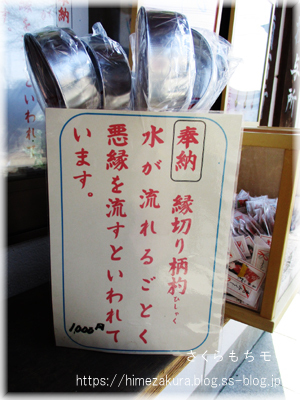 奉納 縁切り柄杓
ひしゃく
水が流れるごとく
悪縁を流すといわれて
います。
1000円
さくらもちモ
https://himezakura.blog.ss-blog.jp